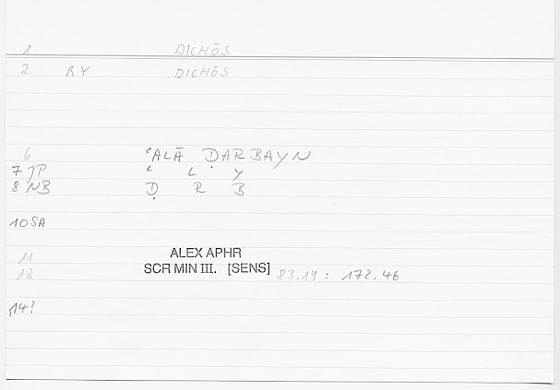 1 DICHŌS
2 RY DICHŌS
6 ʿALĀ ḌARBAYN
7 JP ʿ L Y
8 NB Ḍ R B
10 SA
11 ALEX APHR
12 SCR MIN III. [SENS] 83.19 : 172.46
14?